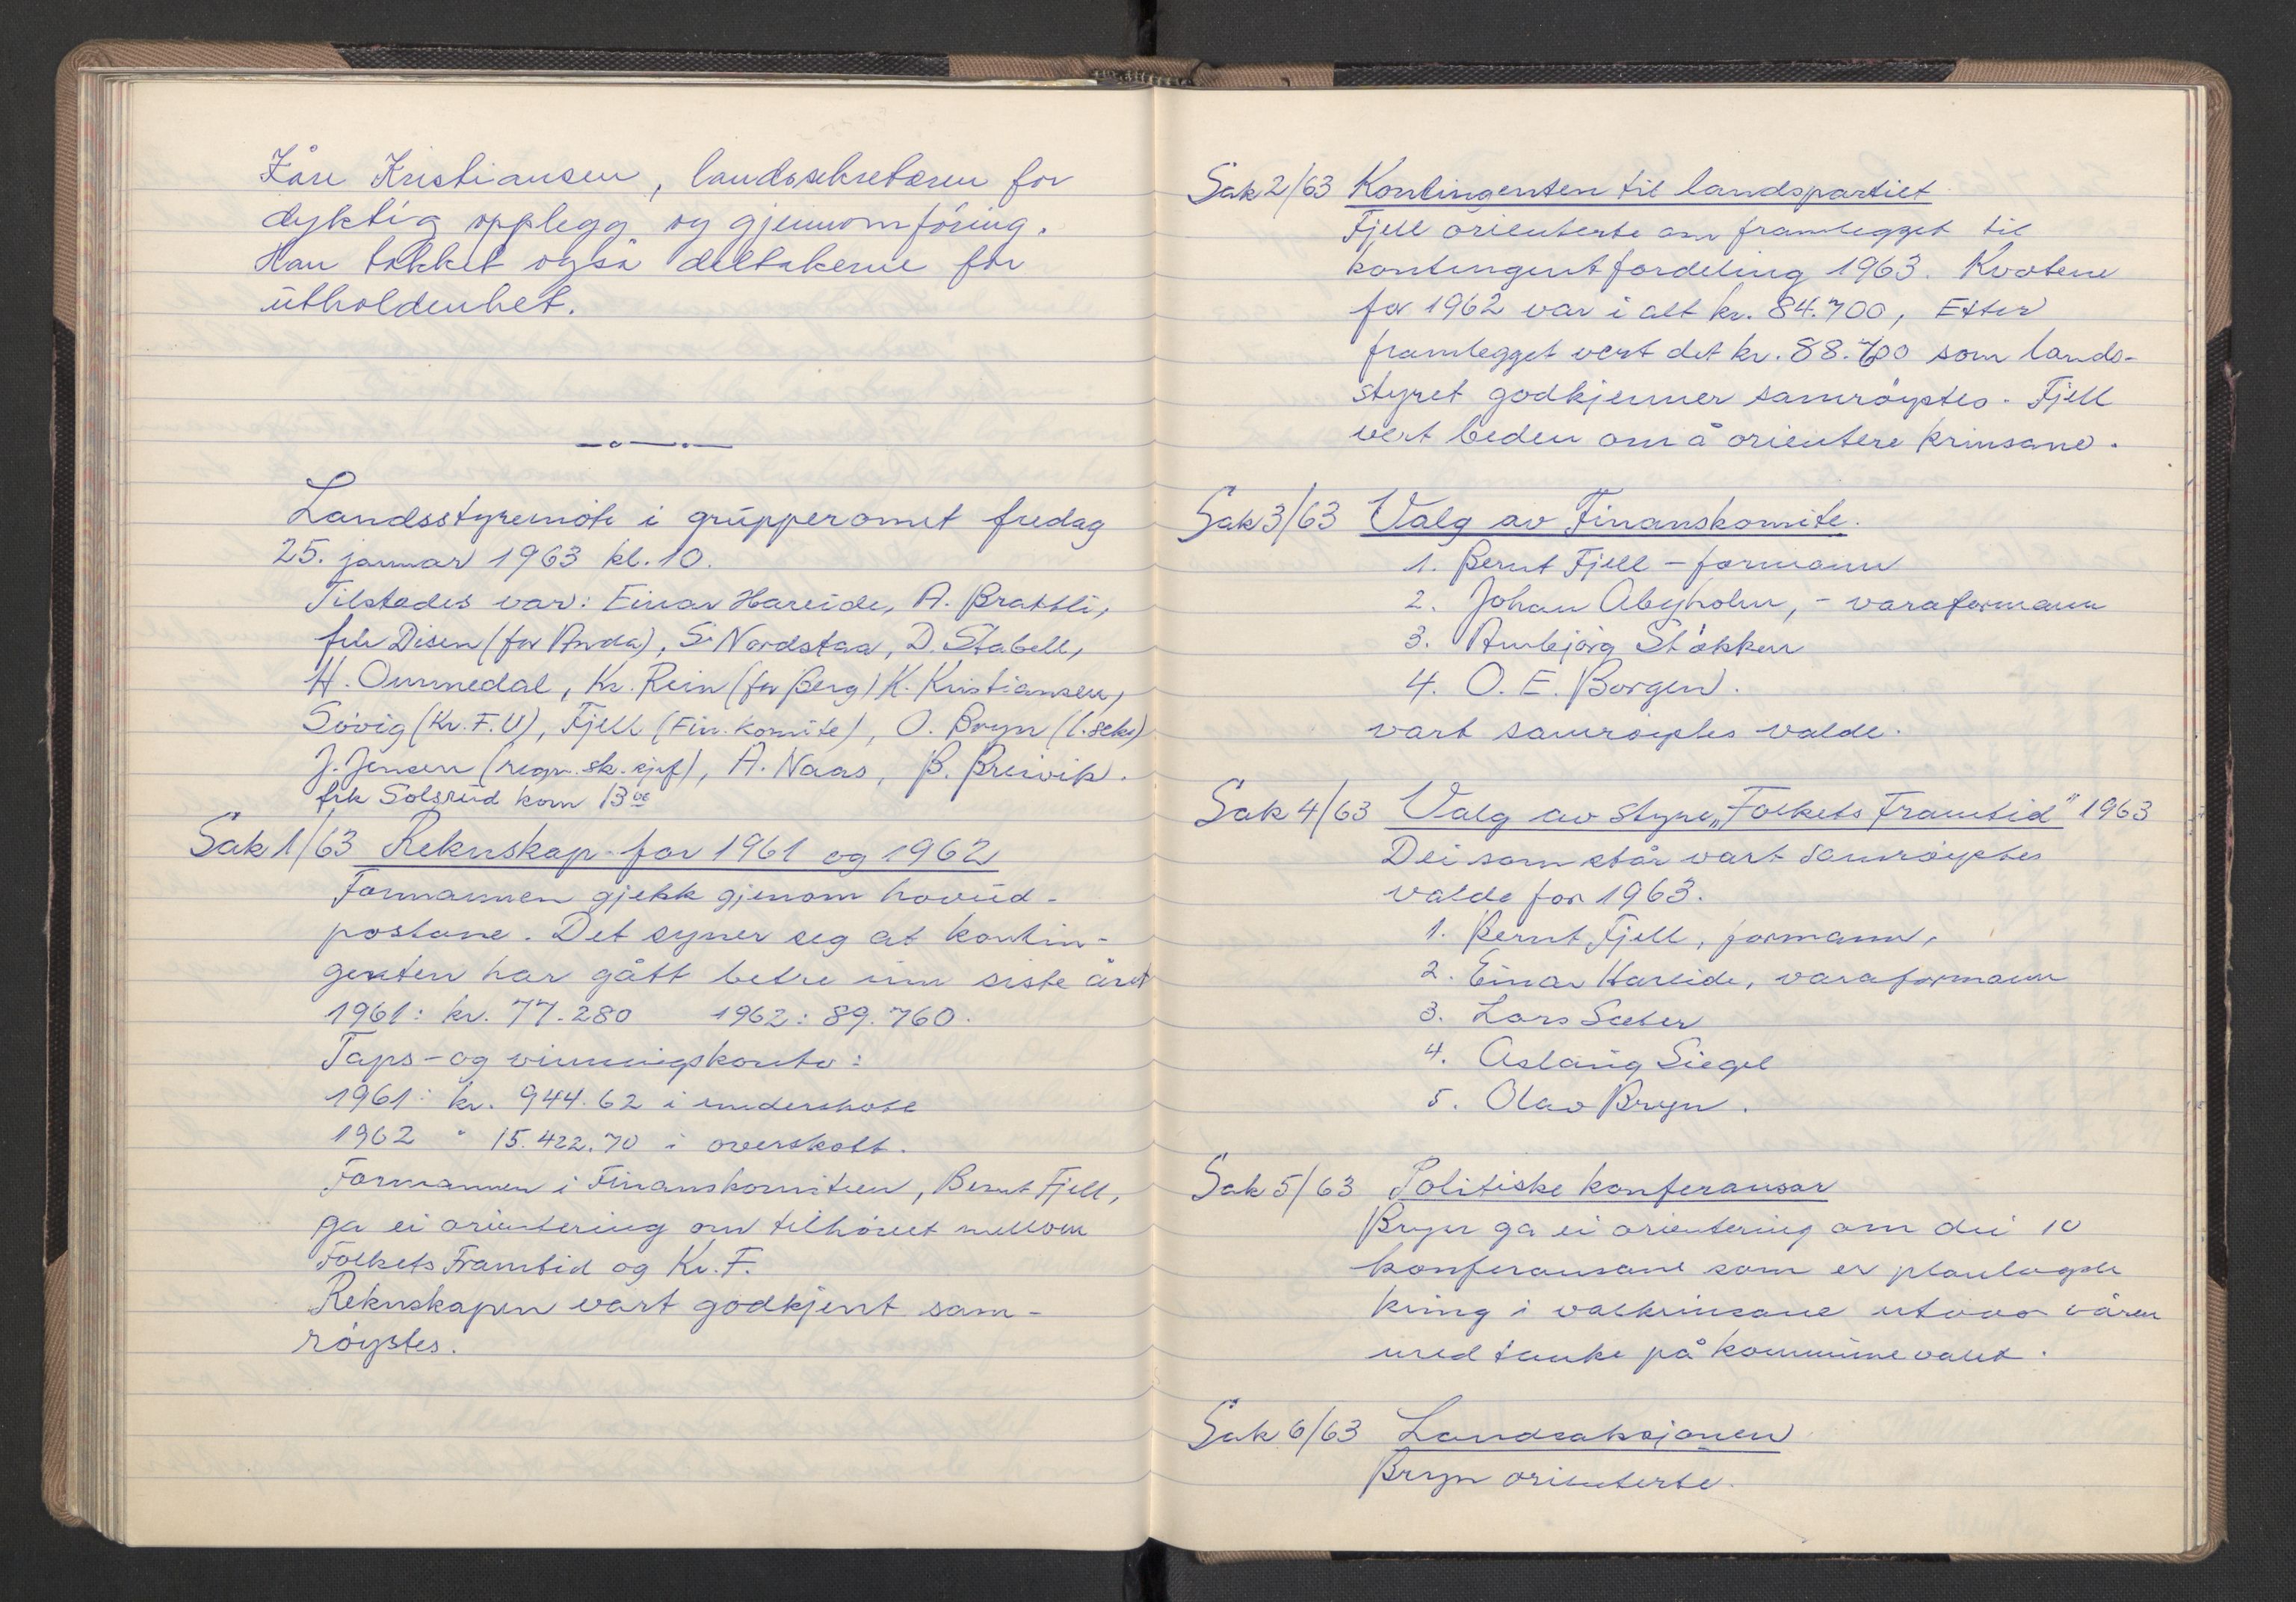 Kåre Kristiansen, landssekretæren for
dyktig opplegg og gjennomføring.
Han takket også deltakerne for
utholdenhet.
Landsstyremøte i grupperomet fredag
25. januar 1963 kl. 10.
Tilstades var: Einar Hareide, A. Brattli,
frk Disen (for Anda), S. Nordstaa, D. Stabell,
H. Ommedal, Kr. Rein (for Berg) K. Kristiansen,
Søvig (Kr. F. U), Fjell (Fin. komite), O. Bryn (l.sekr)
J. Jensen (regn. sk. sjef), A. Naas, B. Breivik.
frk Solsrud kom 13 00
Sak 1/63 Reknskap for 1961 og 1962
Formannen gjekk gjenom hovud-
postane. Det syner seg at kontin-
genten har gått betre inn siste året
1961: kr. 77.280 1962: 89.760.
Taps- og vinningskonto:
1961: kr. 944.62 i underskott
1962 " 15.422.70 i overskott.
Formannen i Finanskomiteen, Bernt Fjell,
ga ei orientering om tilhøvet mellom
Folkets Framtid og Kr. F.
Reknskapen vart godkjent sam-
røystes.
Sak 2/63 Kontingenten til landspartiet
Fjell orienterte om framlegget til
kontingentfordeling 1963. Kvotene
for 1962 var i alt kr. 84.700, Etter
framlegget vert det kr. 88.700 som lands-
styret godkjenner samrøystes. Fjell
vert beden om å orientere krinsane.
Sak 3/63 Valg av Finanskomite.
1. Bernt Fjell - formann
2. Johan Abyholm, - varaformann
3. Annbjørg Støkken
4. O. E. Borgen.
vart samrøystes valde.
Sak 4/63 Valg av styre „Folkets Framtid" 1963
Dei som står vart samrøystes
valde for 1963.
1. Bernt Fjell, formann,
2. Einar Hareide, varaformann
3. Lars Sæter
4. Aslaug Siegel
5. Olav Bryn.
Sak 5/63 Politiske konferansar
Bryn ga ei orientering om dei 10
konferansane som er planlagde
kring i valkrinsane utover våren
med tanke på kommunevalet.
Sak 6/63 Landsaksjonen
Bryn orienterte.